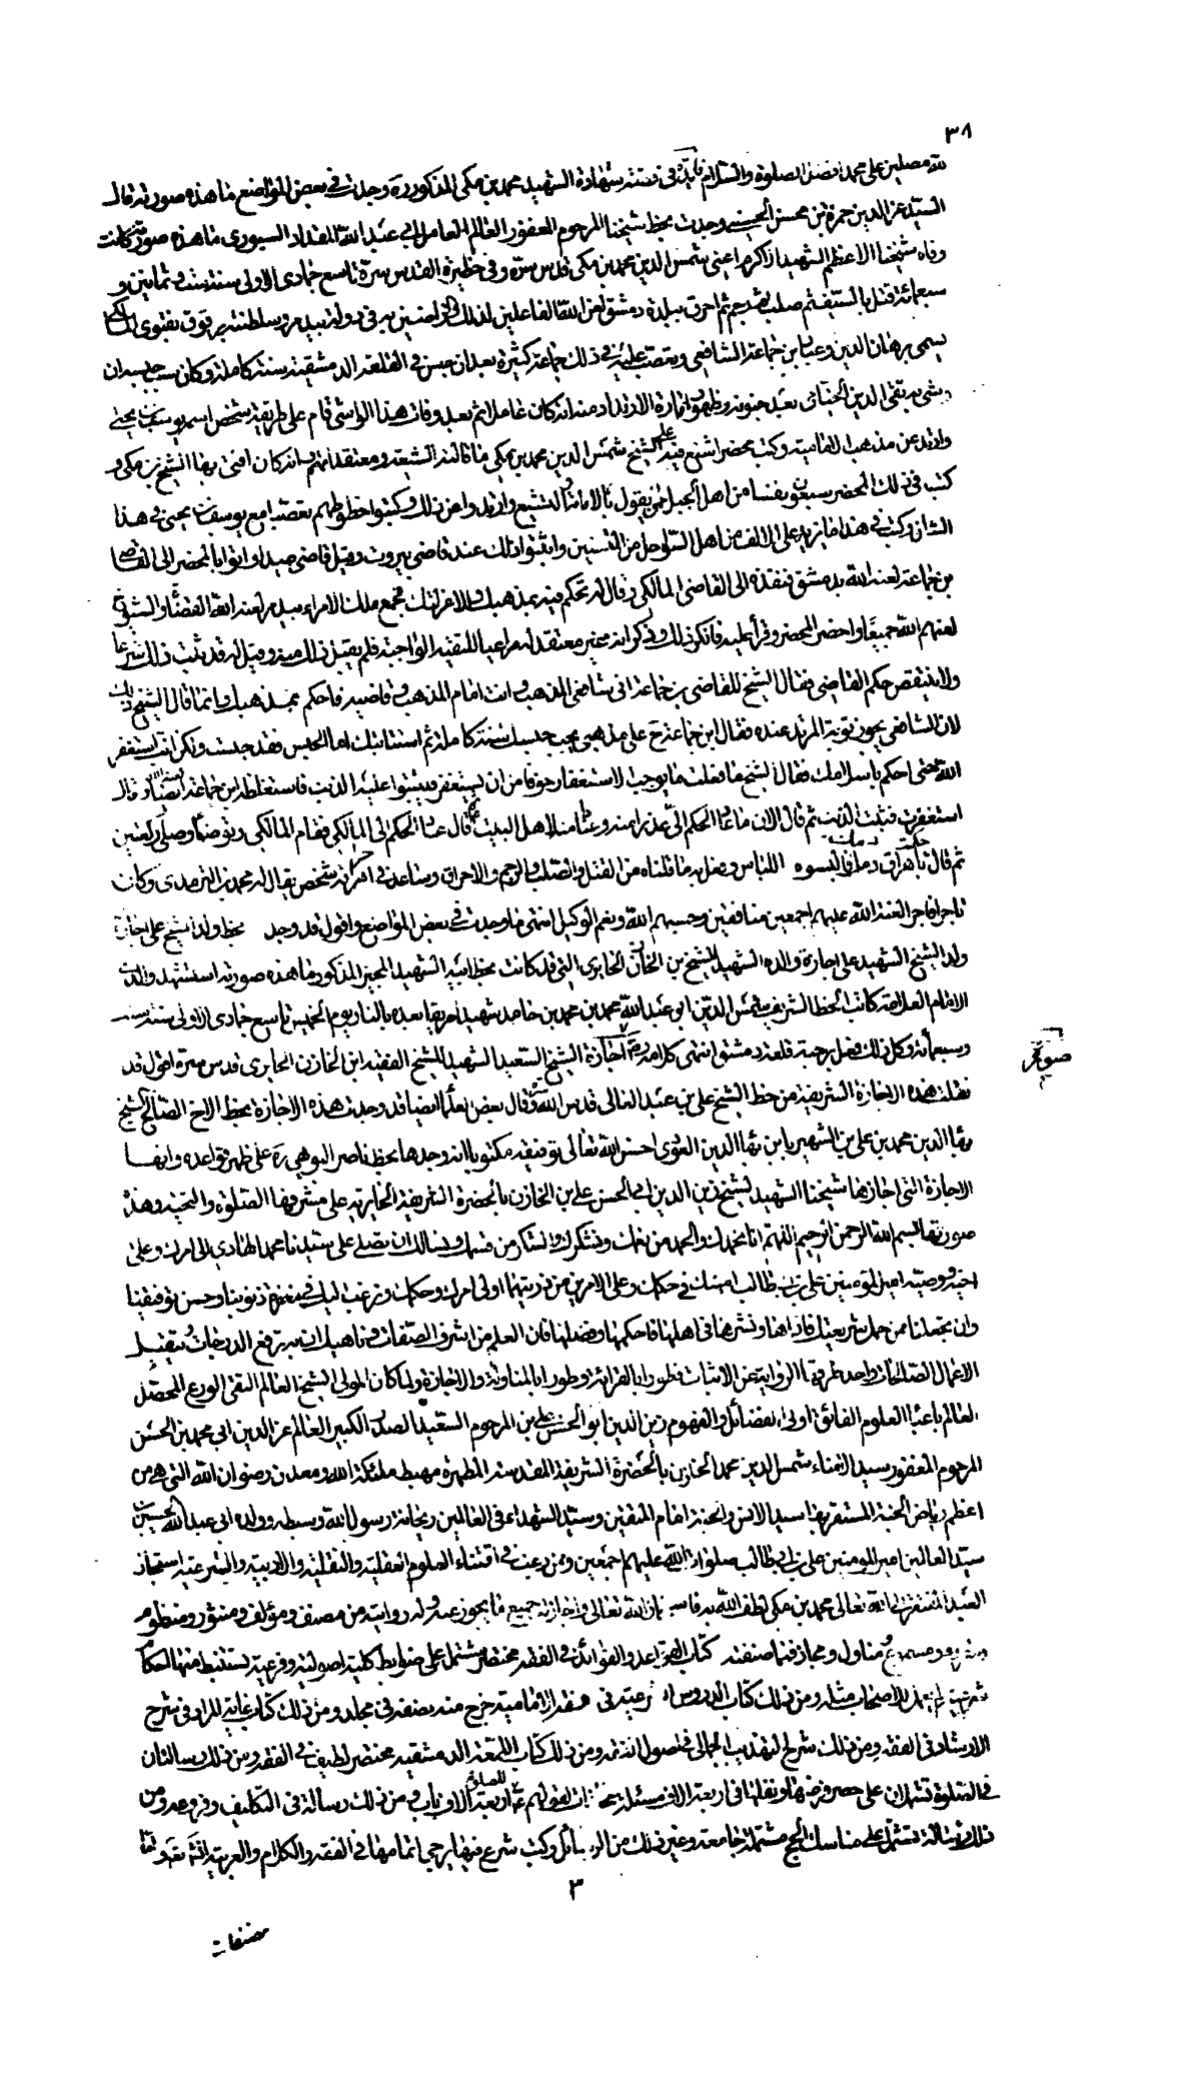 ٣٨
لله مصلين على محمد افضل الصلوة والسلام فايدة فى قصته شهادة الشهيد محمد بن مكى المذكور ره وجدت فى بعض المواضع ما هذه صورته قال
السيد عز الدين حمزة بن محسن الحسينى وجدت بخط شيخنا المرحوم المغفور العالم العامل ابى عبد الله المقداد السيورى ما هذه صورته كانت
وفاه شيخنا الاعظم الشهيد الاكرم اعنى شمس الدين محمد بن مكى قدس سره وفى حظيرة القدس سره تاسع جمادى الاولى سنة ست وثمانين و
سبعمائة قتل بالسيف ثم صلب ثم رجم ثم احرق ببلدة دمشق لعن الله الفاعلين لذلك والراضين به فى دولة بيدمر وسلطنة برقوق بفتوى المالكى
يسمى برهان الدين وعباد بن جماعة الشافعى وتعصب عليه فى ذلك جماعة كثيرة بعد ان حبس فى القلعة الدمشقية سنة كاملة وكان سبب حبسه ان
وشى به تقى الدين الجبلى بعد جنونه وظهور امارة الارتداد منه انه كان عاملا ثم بعد وفات هذا الواشى قام على طريقته شخص اسمه يوسف بن يحيى
وارتد عن مذهب الامامية وكتب محضرا شنع فيه على الشيخ شمس الدين محمد بن مكى ما قالته الشيعة ومعتقداتهم وانه كان افتى بها الشيخ بن مكى و
كتب فى ذلك المحضر سبعون نفسا من اهل الجبل ممن يقول بالامامة والتشيع وارتدوا عن ذلك وكتبوا خطوطهم تعصبا مع يوسف بن يحيى فى هذا
الشان وكتب فى هذا ما يزيد على الالف من اهل السواحل من المتسنين واثبتوا ذلك عند قاضى بيروت وقيل قاضى صيدا واتوا بالمحضر الى القاضى
بن جماعة لعنه الله بدمشق فنفذه الى القاضى المالكى وقال له تحكم فيه بمذهبك والا عزلتك فجمع ملك الامراء بيدمر لعنه الله القضاة والشيوخ
لعنهم الله جميعا واحضر المحضر وقرأ عليه فانكر ذلك وذكر انه غير معتقد له مراعيا للتقية الواجبة فلم يقبل ذلك منه وقيل له قد ثبت ذلك شرعا
ولا ينتقض حكم القاضى فقال الشيخ للقاضى بن جماعة انى شافعى المذهب وانت امام المذهب وقاضيه فاحكم بمذهبك وانما قال الشيخ ذلك
لان الشافعى يجوز توبة المرتد عنده فقال ابن جماعة ح على مذهبى يجب حبسك سنة كاملة ثم استتابتك اما الحبس فقد حبست ولكن انت استغفر
الله حتى احكم باسلامك فقال الشيخ ما فعلت ما يوجب الاستغفار خوفا من ان يستغفر فيثبتوا عليه الذنب فاستغلظه ابن جماعة
استغفرت فثبت الذنب ثم قال الان ما عاد الحكم الى غدرا منه وعنادا منه لاهل البيت ع ثم قال عاد الحكم الى المالكى فقام المالكى وتوضا وصلى ركعتين
ثم قال باهراق دمه فالبسوه اللباس وفعل به ما قلناه من القتل والصلب والرجم والاحراق وساعد فى احراقه شخص يقال له محمد بن الترمدى وكان
تاجرا فاجرا لعنة الله عليهم اجمعين منافقين وحسبهم الله ونعم الوكيل انتهى ما وجدت فى بعض المواضع واقول قد وجد بخط ولد الشيخ على اجازة
ولد الشيخ الشهيد على اجازة والده الشهيد للشيخ بن الخازن الحايرى التى قد كانت بخط ابيه الشهيد المجيز المذكور ما هذه صورته استشهد والدى
الامام العلامة كاتب الخط الشريف شمس الدين ابو عبد الله محمد بن محمد بن حامد شهيدا حريقا بعده بالنار يوم الخميس تاسع جمادى الاولى سنة ست
وسبعمائة وكل ذلك فعل برحبة قلعة دمشق انتهى كلامه رفع اجازة الشيخ السعيد الشهيد للشيخ الفقيه ابن الخازن الحايرى قدس سره اقول قد
صورة
نقلت هذه الاجازة الشريفة من خط الشيخ على بن عبد العالى قدس الله سره وقال بعض العلماء ايضا قد وجدت هذه الاجازة بخط الاخ الصالح الشيخ
بهاء الدين محمد بن على بن الشهير بابن بهاء الدين العودى احسن الله تعالى توفيقه مكتوبا انه وجدها بخط ناصر البويهى ره على ظهر قواعده وانها
الاجازة التى اجازها شيخنا الشهيد للشيخ زين الدين ابى الحسن على بن الخازن بالحضرة الشريفة الحايرية على مشرفها الصلوة والتحية وهذه
صورتها بسم الله الرحمن الرحيم اللهم انا نحمدك والحمد من نعمك ونشكرك والشكر من قسمك ونسالك ان تصلى على سيدنا محمد الهادى الى امرك وعلى
اخيه ووصيه امير المؤمنين على بن ابى طالب امينك فى حكمك وعلى الامرين من ذريتهما اولى امرك وحكمك ونرغب اليك فى مغفرة ذنوبنا وحسن توفيقنا
وان تجعلنا ممن حمل شريعتك فاداها ونشرها فى اهلها فاحكمها وفصلها فان العلم من اشرف الصفات وناهيك ان به ترفع الدرجات وتقبل
الاعمال الصالحات واحد طرقه الرواية عن الاثبات فطورا بالقرائة وطورا بالمناولة والاجازة ولما كان المولى الشيخ العالم التقى الورع المحصل
العالم باعباء العلوم الفائق اولى الفضائل والفهوم زين الدين ابو الحسن على بن المرحوم السعيد الصدر الكبير العالم عز الدين ابى محمد بن الحسن
المرحوم المغفور سيد الامناء شمس الدين محمد الخازن بالحضرة الشريفة المقدسة المطهرة مهبط ملئكة الله ومعدن رضوان الله التى هى من
اعظم رياض الجنة المستقر بها سيد الانس والجنة امام المتقين وسيد الشهداء فى العالمين ريحانة رسول الله وسبطه وولده ابى عبد الله الحسين بن
سيد العالمين امير المومنين على بن ابى طالب صلوات الله عليهم اجمعين وممن رغب فى اقتناء العلوم العقلية والنقلية والادبية والشرعية استجاز
العبد المفتقر الى الله تعالى محمد بن مكى لطف الله به فاستجاز الله تعالى واجاز له جميع ما يجوز عنه وله روايته من مصنف ومؤلف ومنثور ومنظوم
ومقروء ومسموع ومناول ومجاز فمما صنفته كتاب القواعد والفوائد فى الفقه مختصر يشتمل على ضوابط كلية اصولية وفرعية تستنبط منها احكام
شرعية لم يعمل للاصحاب مثله ومن ذلك كتاب الدروس الشرعية فى فقه الامامية خرج منه نصفه فى مجلد ومن ذلك كتاب غاية المراد فى شرح
الارشاد فى الفقه ومن ذلك شرح التهذيب الجمالى فى اصول الفقه ومن ذلك كتاب اللمعة الدمشقية مختصر لطيف فى الفقه ومن ذلك رسالتان
فى الصلوة تشتملان على حصر فرضها ونفلها فى اربعة الاف مسئلة محاذاة لقولهم ع للصلوة اربعة الاف باب ومن ذلك رسالة فى التكليف وفروعه ومن
ذلك رسالة تشتمل على مناسك الحج مشتملة جامعة وغير ذلك من الرسائل وكتب شرع فيها يرجى اتمامها فى الفقه والكلام والعربية
٣
مصنفات